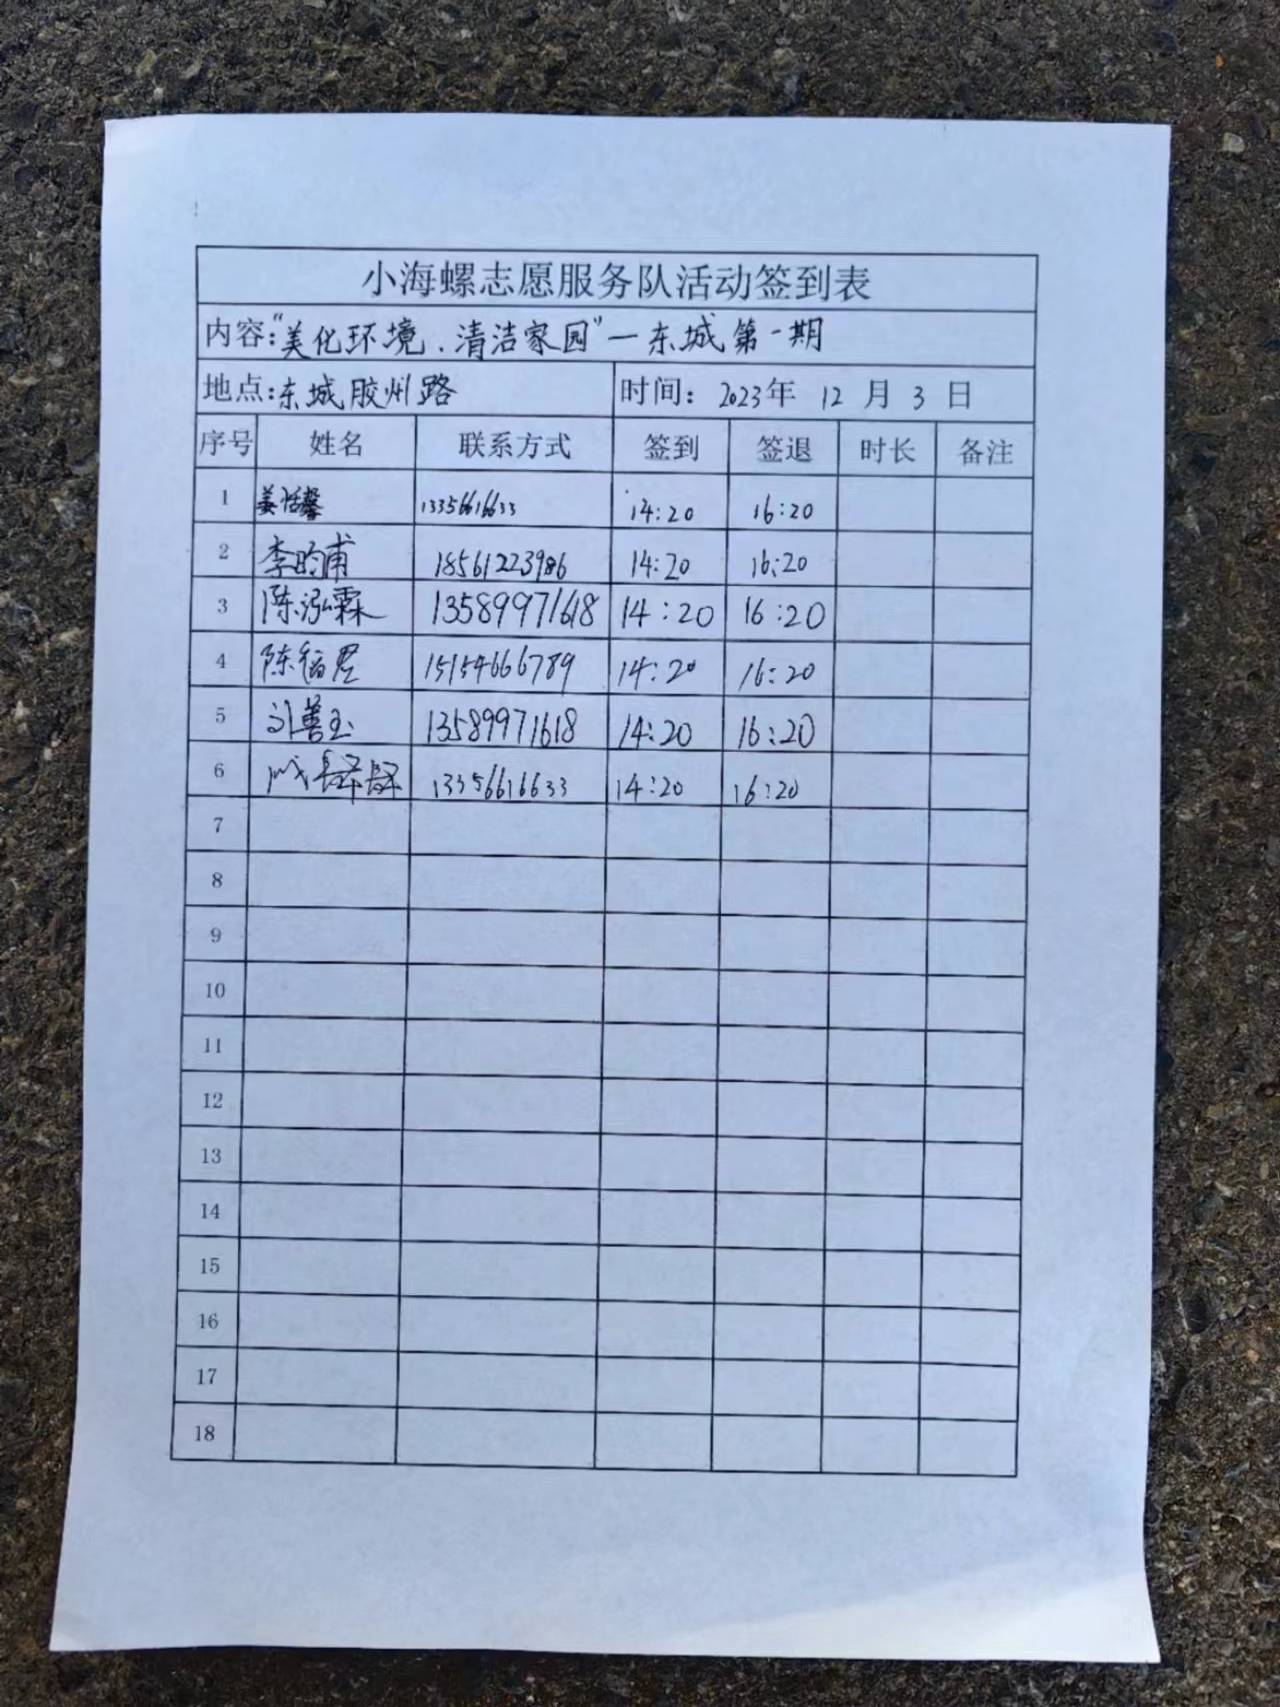 小海螺志愿服务队活动签到表
内容:"美化环境.清洁家园"一东城第一期
地点:东城胶州路 时间: 2023年 12 月 3 日
序号 姓名 联系方式 签到 签退 时长 备注
1 姜恬馨 13356616633 14:20 16:20
2 李昀甫 18561223986 14:20 16:20
3 陈泓霖 13589971618 14:20 16:20
4 陈 15154666789 14:20 16:20
5 刘善玉 13589971618 14:20 16:20
6 13356616633 14:20 16:20
7
8
9
10
11
12
13
14
15
16
17
18